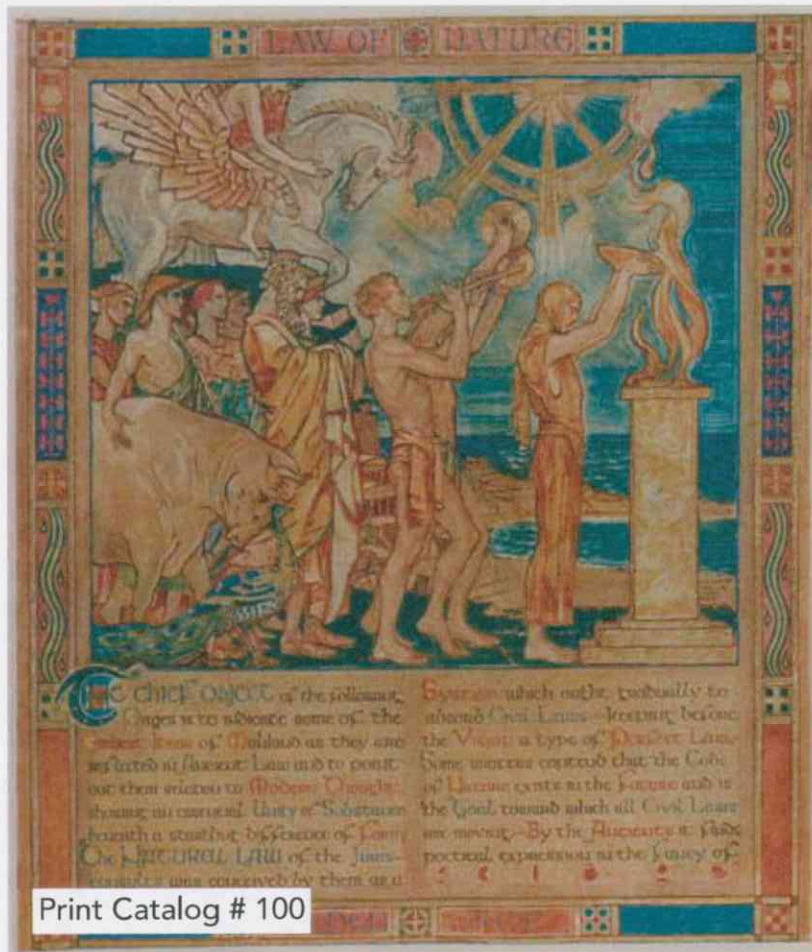 LAW OF NATURE
THE CHIEF OBJECT of the following
Pages is to indicate some of the
Earliest Ideas of Mankind as they are
reflected in Ancient Law and to point
out their relation to Modern Thought
showing an essential Unity of Substance
beneath a startling difference of Form
The NATURAL LAW of the Juris-
consults was conceived by them as a
System which ought gradually to
absorb Civil Laws—keeping before
the Vision a type of Perfect Law.
Some writers contend that the Code
of Nature exists in the Future and is
the Goal toward which all Civil Laws
are moving—By the Ancients it finds
poetical expression in the Fancy of
Print Catalog # 100